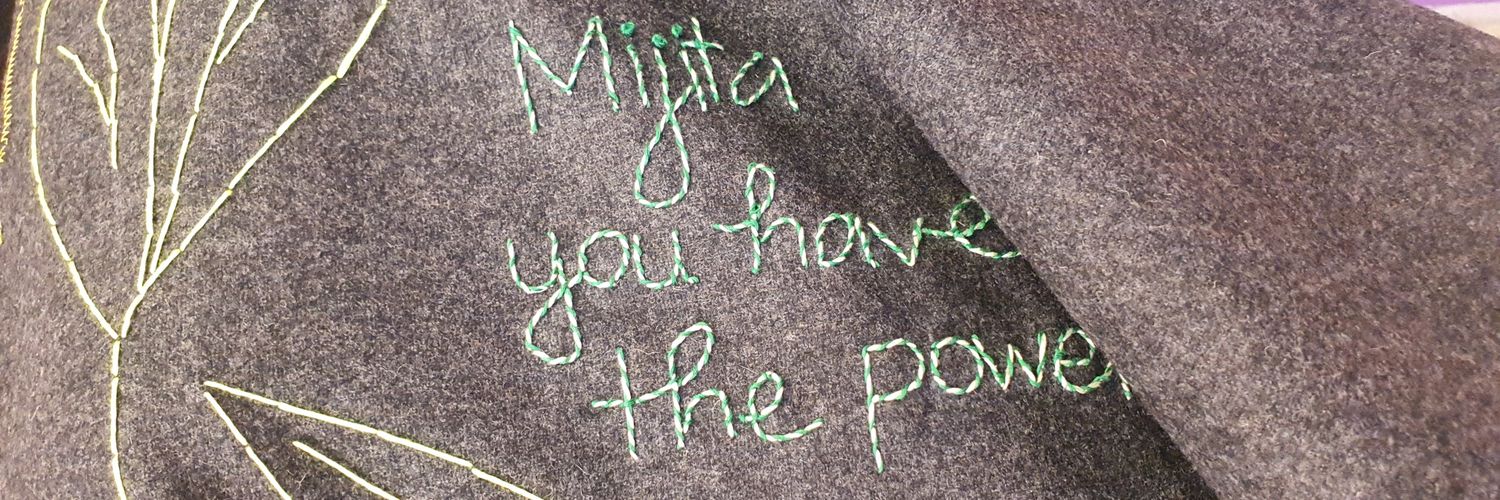 Mijita
you have
the power